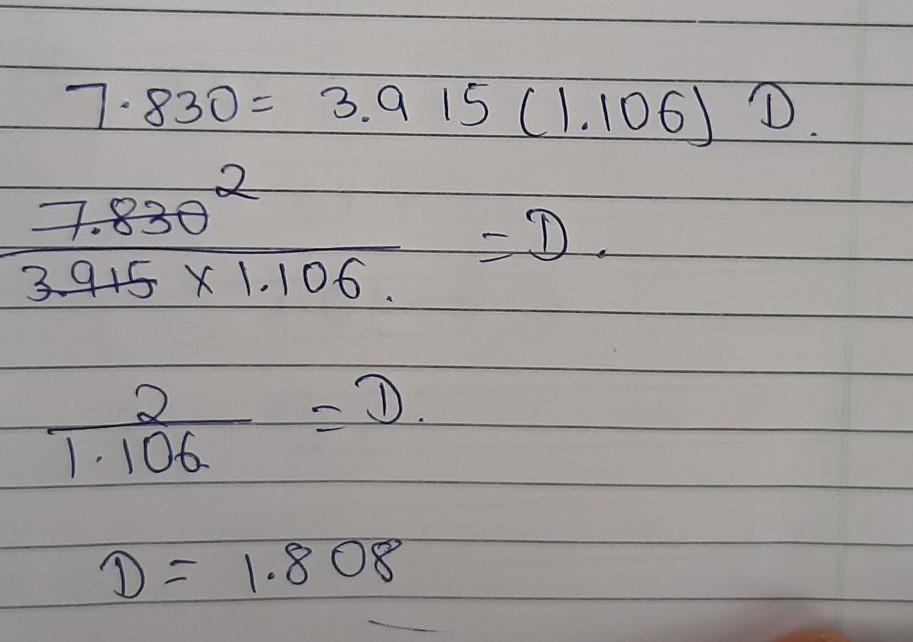 7.830 = 3.915 (1.106) D.
2
7.830
3.915 × 1.106.
= D.
2
1.106
= D.
D = 1.808